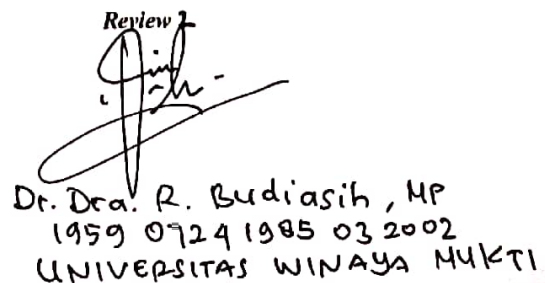 Review 2
Dr. Dra. R. Budiasih, MP
1959 0724 1985 03 2002
UNIVERSITAS WINAYA MUKTI